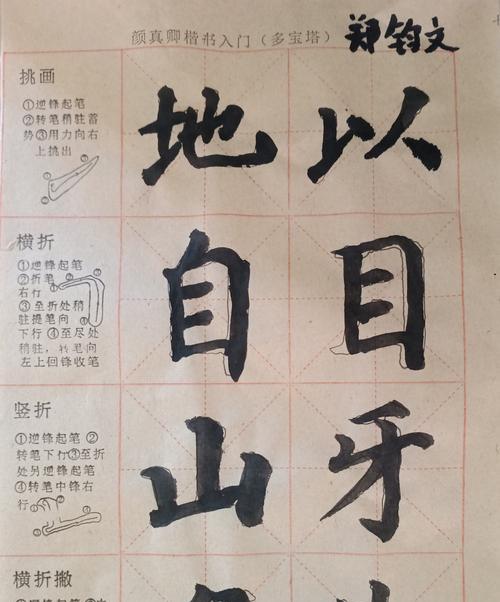 颜真卿楷书入门（多宝塔） 郑钧文
挑画
①逆锋起笔
②转笔稍驻蓄
势③用力向右
上挑出
地 以
横折
①逆锋起笔
②折笔
右行
③至折处稍
驻提笔向
下行④至尽处
稍驻，转笔向
左上回锋收笔
自 目
竖折
①逆锋起笔②
转笔下行③至折
处另逆锋起笔
④转笔中锋右
行
山 牙
横折撇